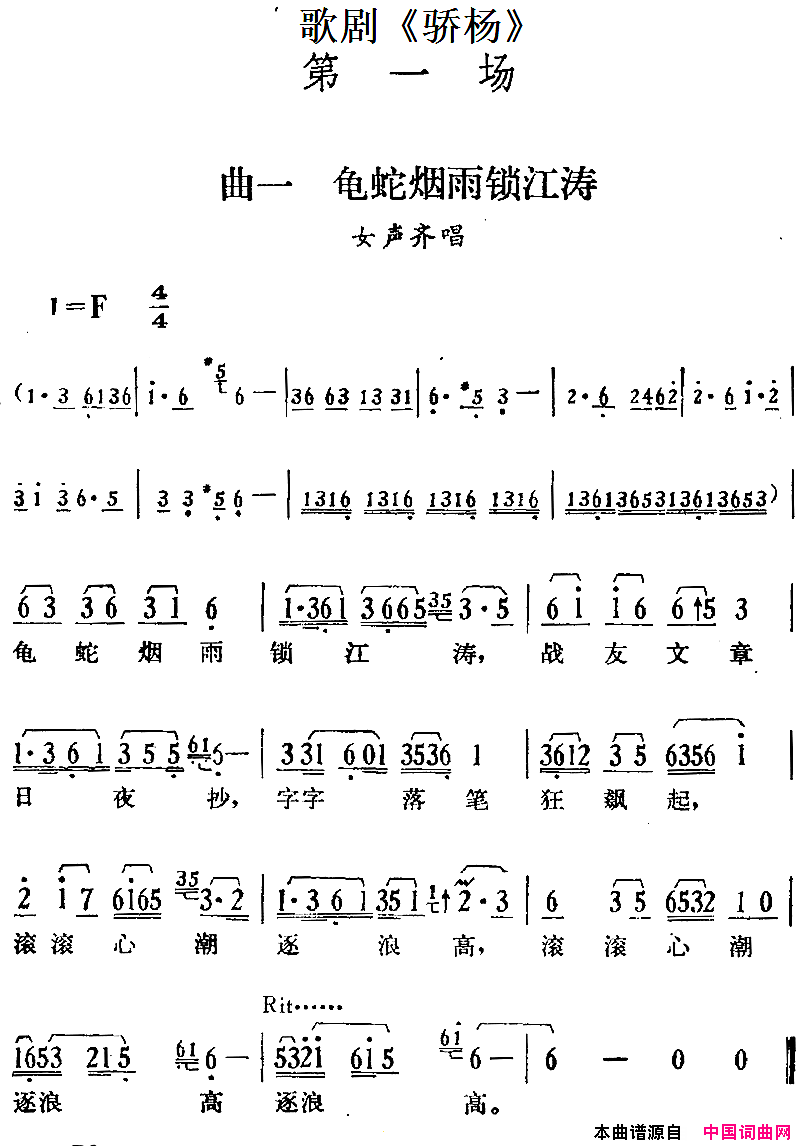 歌剧《骄杨》
第一场
曲一 龟蛇烟雨锁江涛
女声齐唱
1=F 4/4
(1·3 6136 | i·6 #5 6 — | 36 63 13 31 | 6·#5 3 — | 2·6 2462 | 2·6 i·2
3 i 3 6·5 | 3 3 #5 6 — | 1316 1316 1316 1316 | 1361365313613653)
63 36 31 6 | 1·361 3665 35 3·5 | 6i i6 6↑5 3
龟蛇烟雨锁江涛,战友文章
1·361 355 61 6 — | 331 601 3536 1 | 3612 35 6356 i
日夜抄,字字落笔狂飙起,
2 i7 6i65 35 3·2 | 1·361 351 1↑2·3 | 6 35 6532 10
滚滚心潮逐浪高,滚滚心潮
Rit······
1653 215 61 6 — | 532i 6i5 6i 6 — | 6 — 0 0
逐浪高逐浪高。
本曲谱源自 中国词曲网